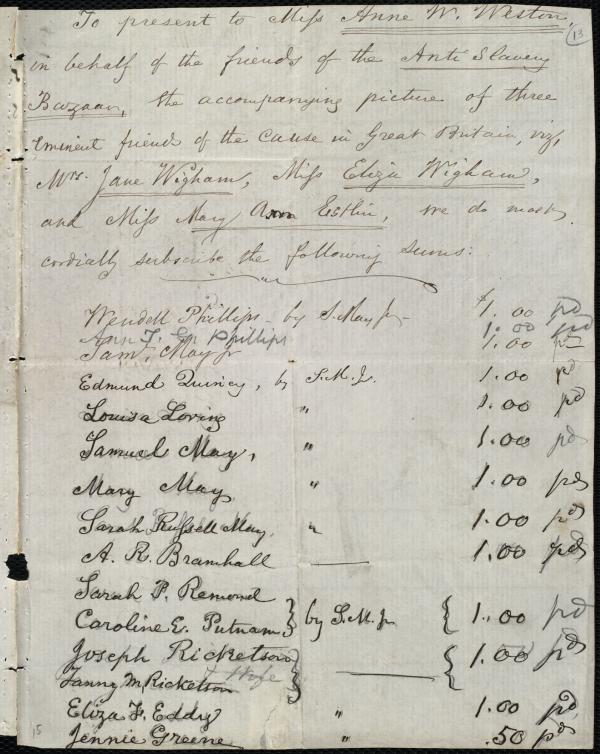 To present to Miss Anne W. Weston,
13
in behalf of the friends of the Anti Slavery
Bazaar, the accompanying picture of three
eminent friends of the Cause in Great Britain, viz,
Mrs. Jane Wigham, Miss Eliza Wigham,
and Miss Mary Ann Estlin, we do most
cordially subscribe the following sums:
Wendell Phillips - by S. May Jr - $1.00 pd
Ann T. G. Phillips 1.00 pd
Saml. May Jr 1.00 pd
Edmund Quincy, by S.M. Jr. 1.00 pd
Louisa Loring " 1.00 pd
Samuel May, " 1.00 pd
Mary May, " 1.00 pd
Sarah Russell May, " 1.00 pd
A. R. Bramhall — 1.00 pd
Sarah P. Remond
Caroline E. Putnam, } by S.M. Jr { 1.00 pd
Joseph Ricketson & Wife } — { 1.00 pd
Fanny M. Ricketson
Eliza F. Eddy " 1.00 pd
Jennie Greene " .50 pd
15